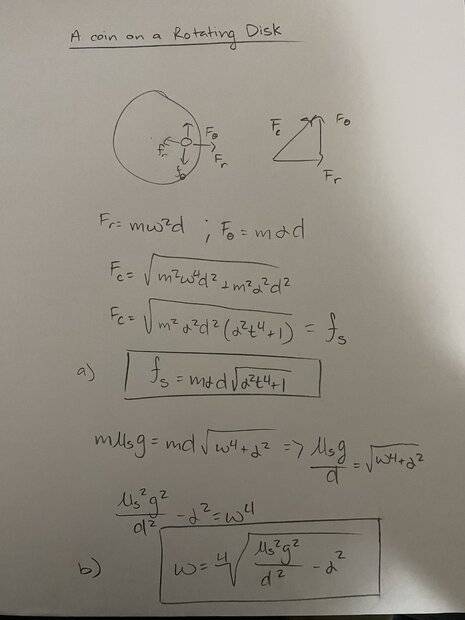 A coin on a Rotating Disk
fᵣ F_θ Fᵣ f_θ
F_c F_θ Fᵣ
Fᵣ = mω²d ; F_θ = mαd
F_c = √(m²ω⁴d² + m²α²d²)
F_c = √(m²α²d²(α²t⁴+1)) = fₛ
a) fₛ = mαd√(α²t⁴+1)
mμₛg = md√(ω⁴+α²) => μₛg/d = √(ω⁴+α²)
μₛ²g²/d² - α² = ω⁴
b) ω = ⁴√(μₛ²g²/d² - α²)